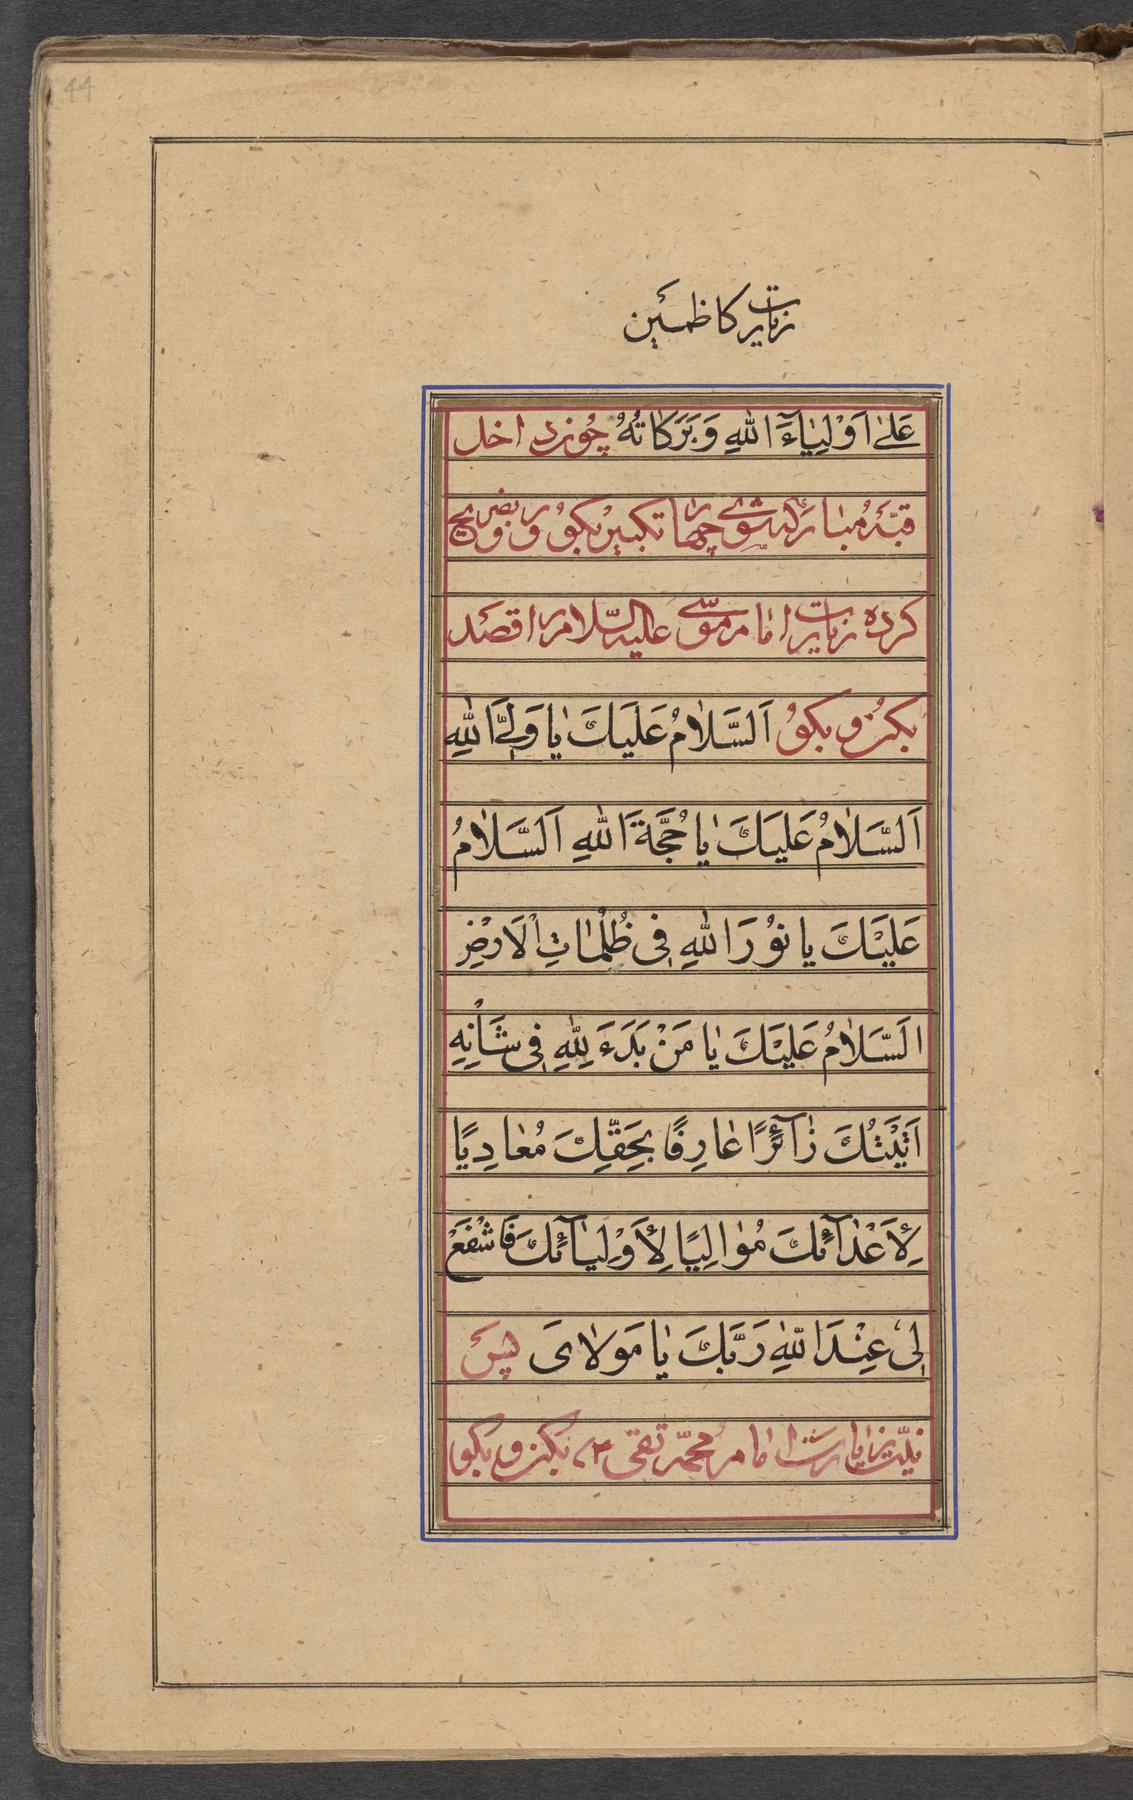 44
زیارت کاظمین
عَلیٰ اَوْلِیٰاءَ اللهِ وَ بَرَکٰاتُهُ چون داخل
قبّهٔ مُبارکه شوی چهار تکبیر بکو و رو بضریح
کرده زیارت امام موسی علیه السّلام را قصد
بکن و بکو اَلسَّلاٰمُ عَلَیْكَ یٰا وَلِیَّ اللهِ
اَلسَّلاٰمُ عَلَیْكَ یٰا حُجَّةَ اللهِ اَلسَّلاٰمُ
عَلَیْكَ یا نُوْرَ اللهِ فِی ظُلُمٰاتِ الْاَرْضِ
اَلسَّلاٰمُ عَلَیْكَ یٰا مَنْ بَدَءَ لِلّٰهِ فِی شَأْنِهِ
اَتَیْتُكَ زٰآئِرًا عٰارِفًا بِحَقِّكَ مُعٰادِیًا
لِاَعْدٰآئِكَ مُوٰالِیًا لِاَوْلِیٰآئِكَ فَاشْفَعْ
لِی عِنْدَ اللهِ رَبِّكَ یٰا مَوْلاٰیَ پس
نیّت زیارت امام محمّد تقی ؑ بکن و بکو